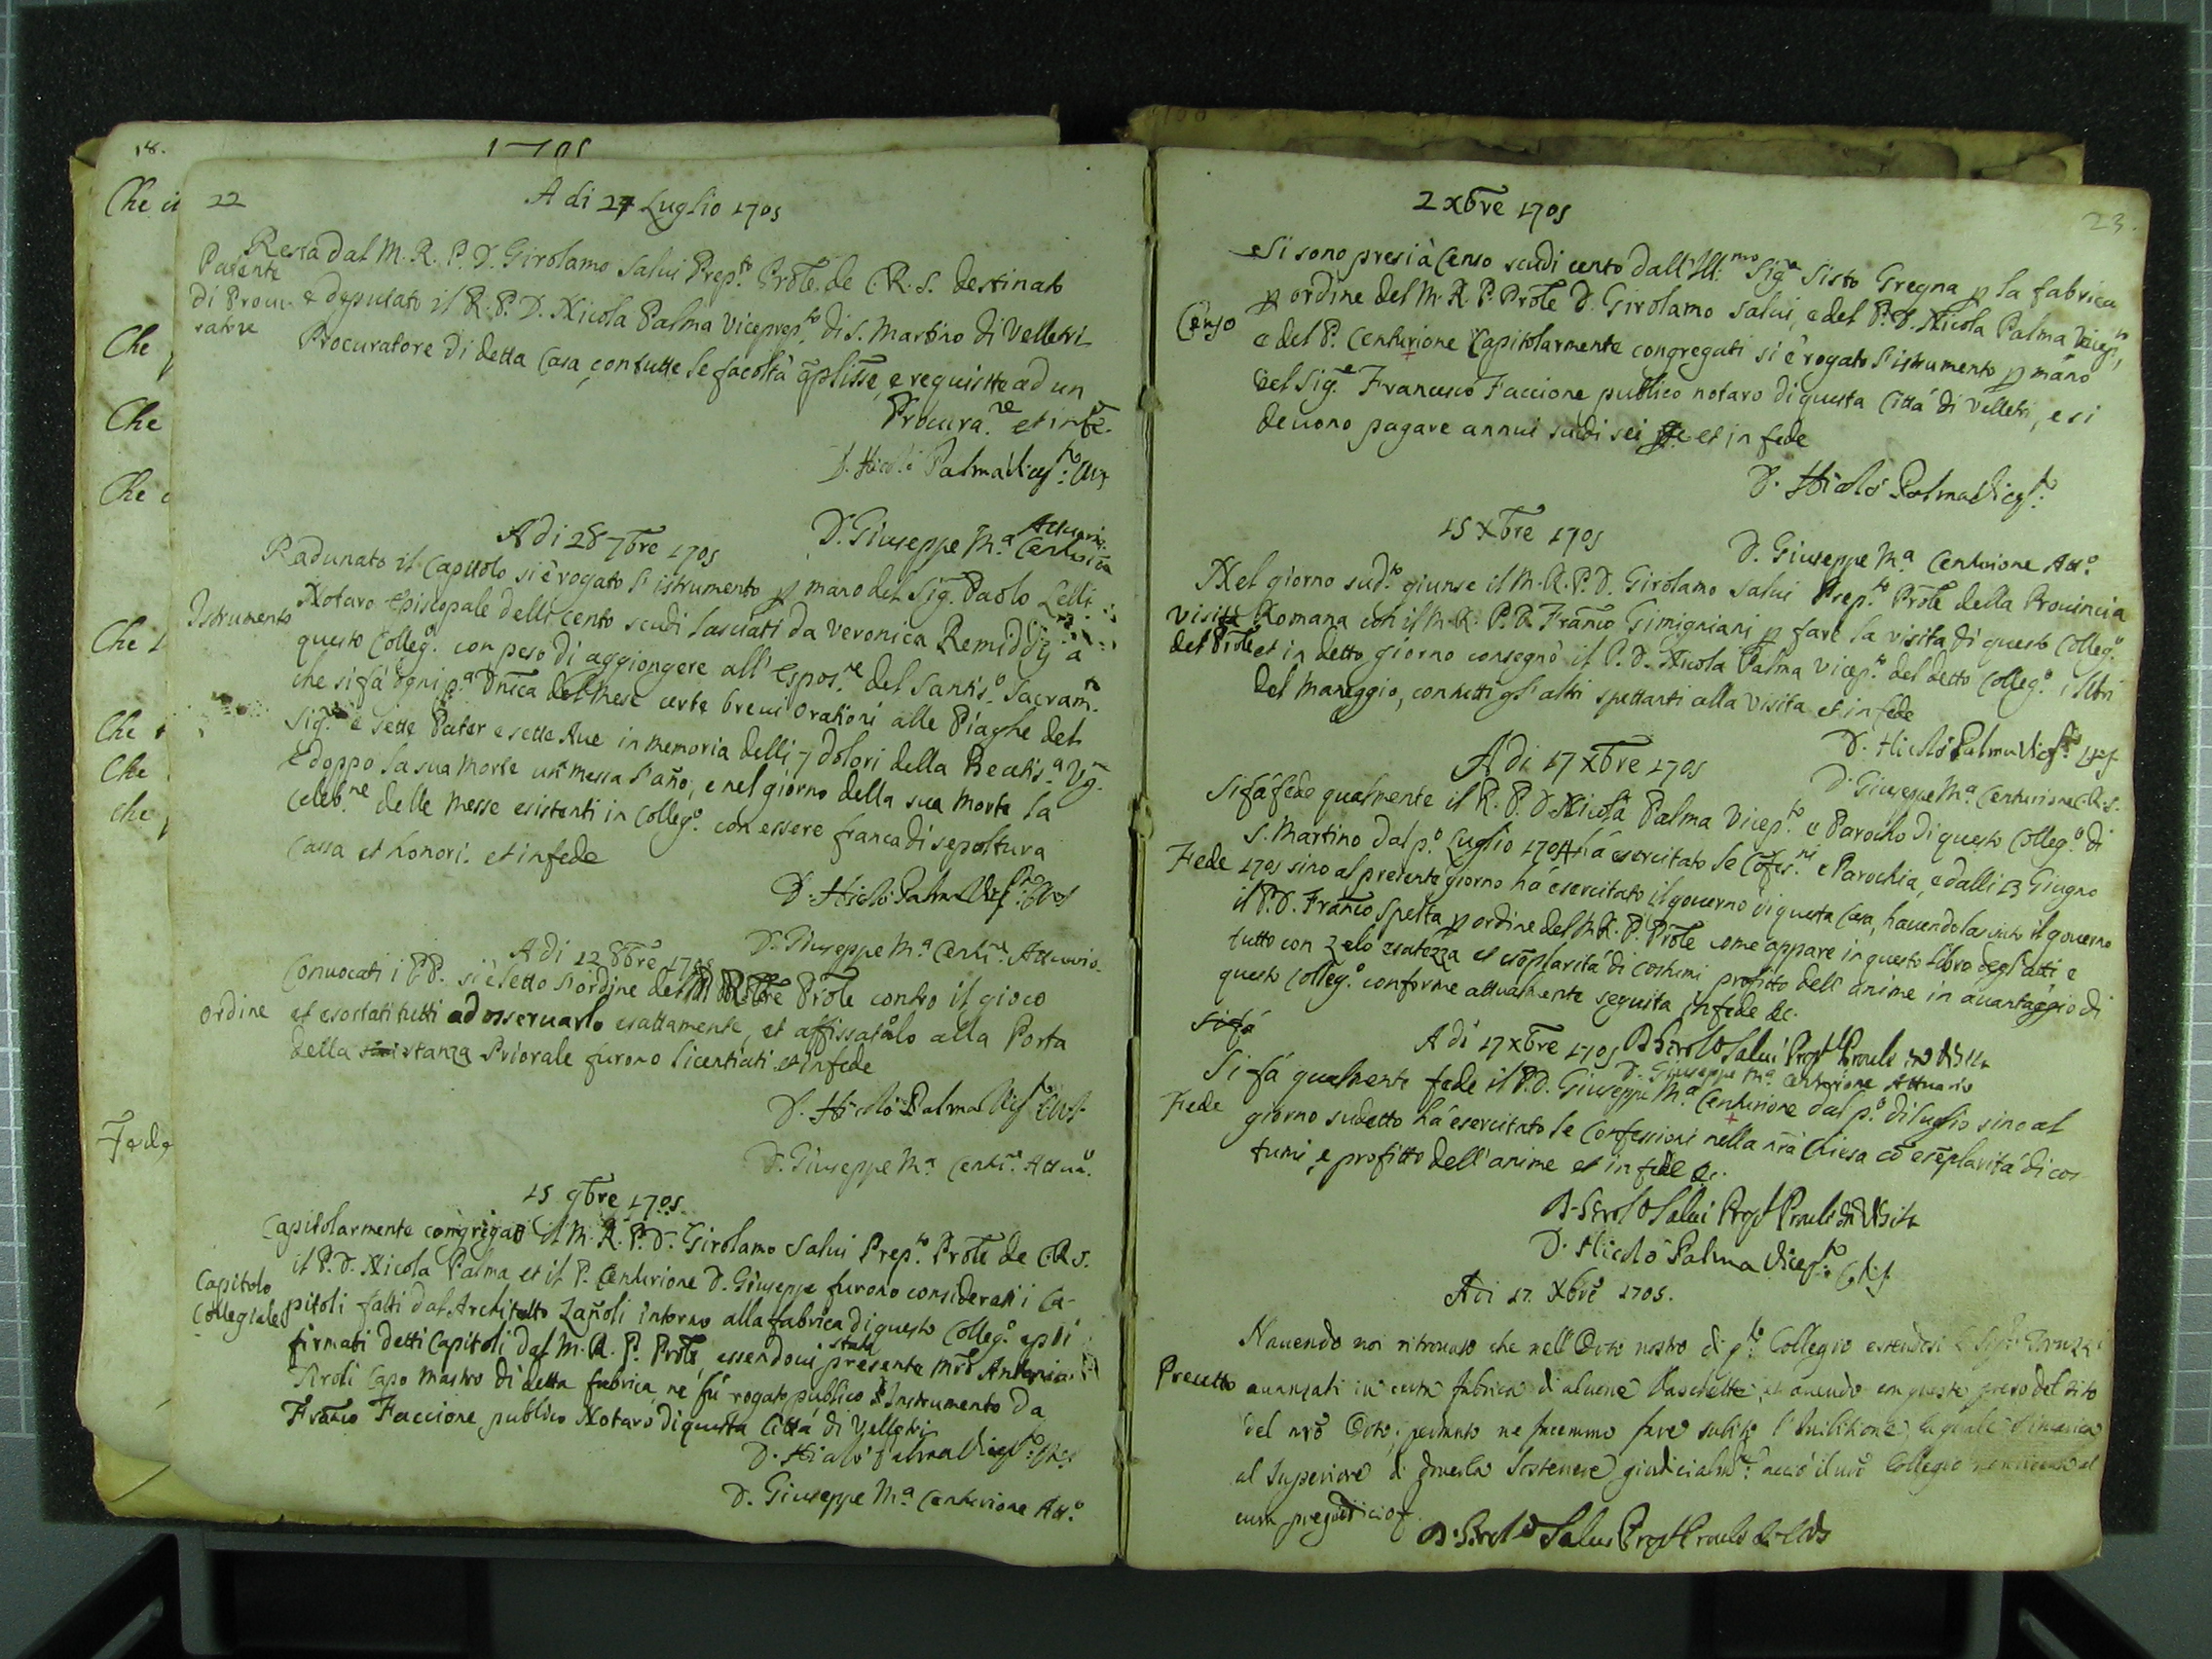 18.
1705
Che
Che
Che
Che
Che
Che
Che
che
Fede
22
A di 27 Luglio 1705
Resta dal M. R. P. D. Girolamo Salui Prep.to Prôle. de C. R. S. destinato
Patente
di Procu-
ratore
e deputato il R. P. D. Nicola Palma Viceprep.to di S. Martino di Velletri
Procuratore di detta Casa, con tutte le facoltà aplisse, e requisitte ad un
Procura.re et in fe.
D. Nicolò Palma Vicep.to
D. Giuseppe M.a Centurio Attuario
A di 28 7bre 1705
Radunato il Capitolo si è rogato l'istrumento p mano del Sig. Paolo Lelli
Istrumento
Notaro Episcopale delli cento scudi lasciati da Veronica Remiddij à
questo Colleg.o con peso di aggiongere all' Espos.ne del Santis.o Sacram.to
che si fà ogni p.a Dñica del Mese certe breui Orationi alle Piaghe del
Sig.e e sette Pater e sette Aue in memoria delli 7 dolori della Beatis.a Vg.
e doppo la sua morte un messa l'año, e nel giorno della sua morte la
Celeb.ne delle Messe esistenti in Colleg.o con essere franca di sepoltura
Cassa et honori. et in fede
D. Nicolò Palma Vicep.to
D. Giuseppe M.a Centu.ne Attuario.
A di 12 8bre 1705
Convocati i PP. si è letto l'ordine del M R Pre Prôle contro il gioco
ordine
et esortati tutti ad osseruarlo esattamente, et affissatolo alla Porta
della stanza Priorale furono licentiati et in fede
D. Nicolò Palma Vicep.to
D. Giuseppe M.a Centu.ne Attua.o
15 9bre 1705
Capitolarmente congregati il M. R. P. D. Girolamo Salui Prep.to Prôle de C. R. S.
il P. D. Nicola Palma, et il P. Centurione D. Giuseppe furono considerati i Ca-
Capitolo
Collegiale
pitoli fatti dal Architetto Zañoli intorno alla fabrica di questo Colleg.o e poi
firmati detti Capitoli dal M. R. P. Prôle, essendoui stato presente Mrõ Antonio
Tiroli Capo Mastro di detta fabrica, ne fù rogato publico Instrumento da
Frañco Faccione publico Notaro di questa Città di Velletri
D. Nicolò Palma Vicep.to
D. Giuseppe M.a Centurione Att.o
23.
2 Xbre 1705
Si sono presi à Censo scudi cento dall' Ill.mo Sig.e Sisto Gregna p la fabrica
p ordine del M. R. P. Prôle D. Girolamo Salui, e del P. D. Nicola Palma Vicep.to,
Censo
e del P. Centurione Capitolarmente congregati si è rogato l'istrumento p mano
del Sig.e Francesco Faccione publico notaro di questa Città di Velletri, e si
deuono pagare annui scudi sei et in fede
D. Nicolò Palma Vicep.to
D. Giuseppe M.a Centurione Att.o
15 Xbre 1705
Nel giorno sud.to giunse il M. R. P. D. Girolamo Salui Prep.to Prôle della Prouincia
Visita
del Prôle
Romana con il M. R. P. D. Frañco Gimigniani p fare la visita di questo Colleg.o
et in detto giorno consegnò il P. D. Nicola Palma Vicep.to del detto Colleg.o i libri
del Maneggio, con tutti gl' altri spettanti alla Visita et in fede
D. Nicolò Palma Vicep.to
D. Giuseppe M.a Centurione C. R. S.
A di 17 Xbre 1705
Si fà fede qualmente il R. P. D. Nicola Palma Vicep.to e Parocho di questo Colleg.o di
S. Martino dal p.o Luglio 1704 hà esercitato le Cõfes.ni e Parochia, e dalli 13 Giugno
Fede
1705 sino al presente giorno hà esercitato il gouerno di questa Casa, hauendo lasciato il gouerno
il P. D. Frañco Spelta p ordine del M. R. P. Prôle come appare in questo Libro degl' atti e
tutto con zelo esatezza et esẽplarità di costumi profitto dell' anime in auantaggio di
questo Colleg.o conforme attualmente seguita in fede &c.
Si fà
A di 17 Xbre 1705
D. Girol.o Salui Prep.to Prouле in Visita
D. Giuseppe M.a Centurione Attuario
Si fà qualmente fede il P. D. Giuseppe M.a Centurione dal p.o di luglio sino al
Fede
giorno sudetto hà esercitato le Confessioni nella nrã Chiesa cõ esẽplarità di cos-
tumi, e profitto dell' anime et in fede &c.
D. Girol.o Salui Prep.to Proule in Visita
D. Nicolò Palma Vicep.to
A di 17. Xbre 1705.
Hauendo noi ritrouato che nell' Orto nostro di q.to Collegio
Precetto
auanzati in certa fabrica di alcune Vaschette, et auendo con questo preso del sito
del nrõ Orto; pertanto ne facemmo fare subito l'Inibitione, la quale
al Superiore di douerla sostenere giudicialm.te acciò il nrõ Collegio
cun pregiuditio
D. Girol.o Salui Prep.to Proule